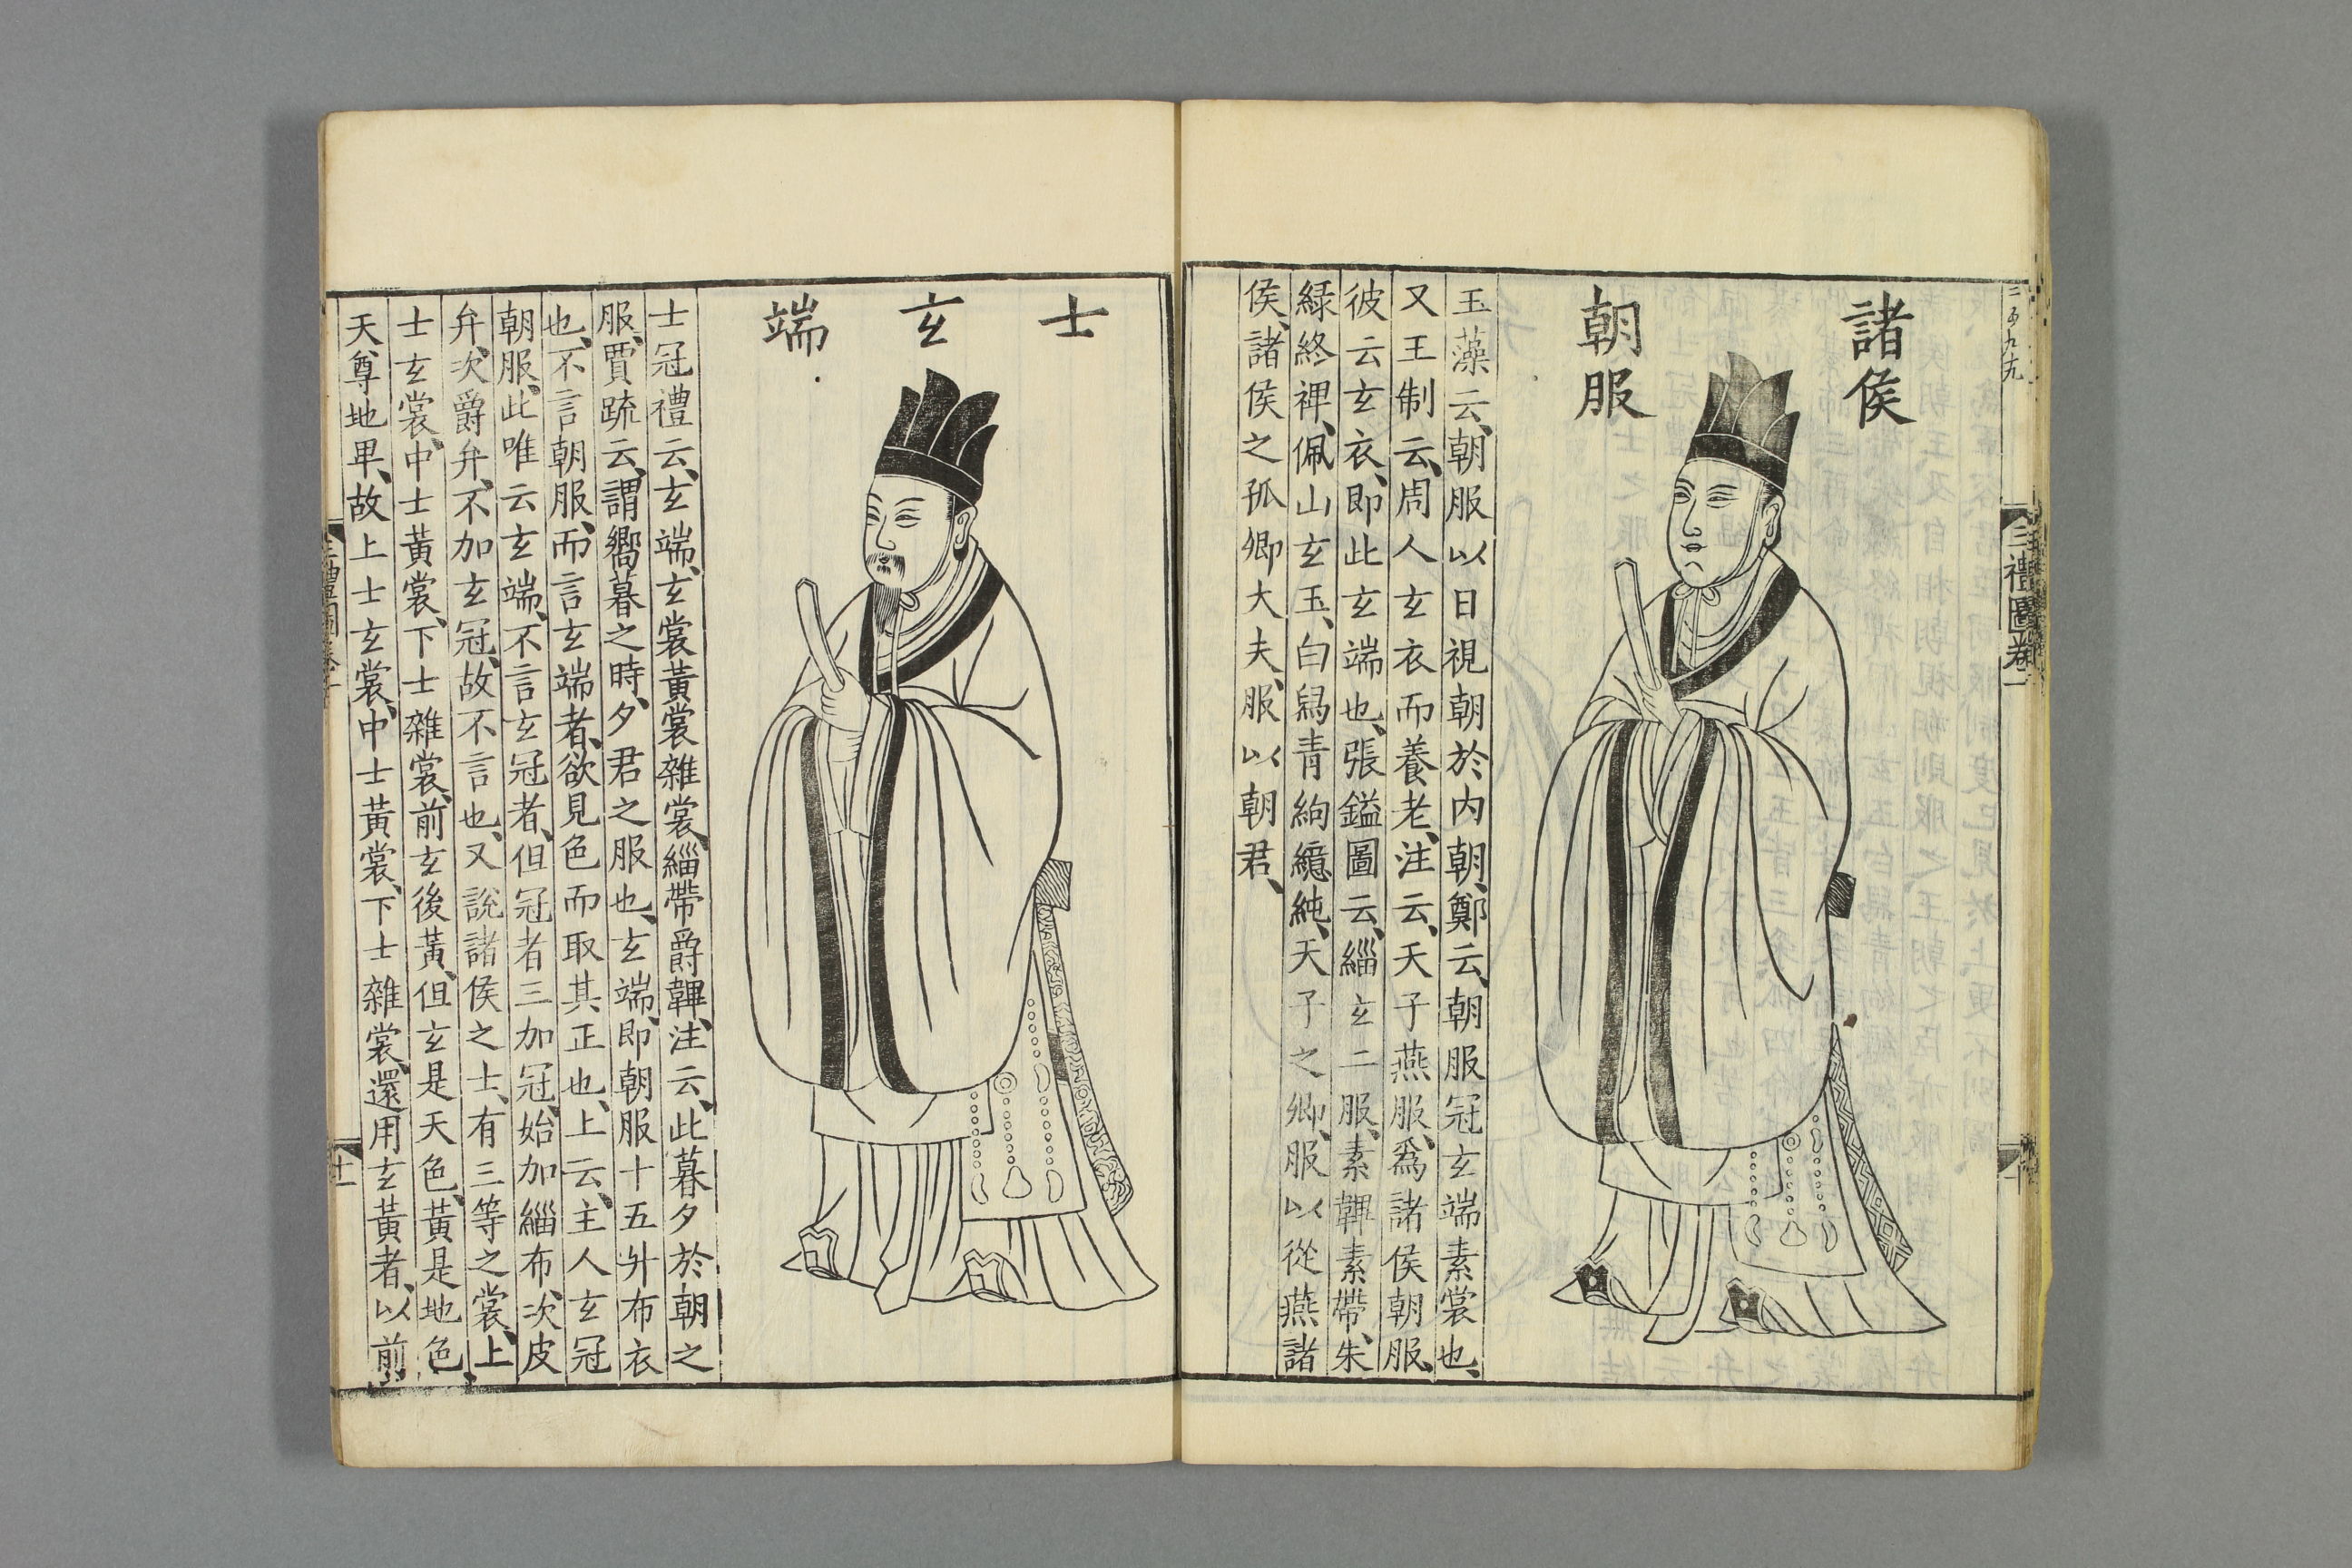 諸侯
朝服
玉藻云、朝服以日視朝於内朝、鄭云、朝服冠玄端素裳也、
又王制云、周人玄衣而養老、注云、天子燕服、爲諸侯朝服、
彼云玄衣、即此玄端也、張鎰圖云、緇玄二服、素韠素帶、朱
緑終裨、佩山玄玉、白舄青絇繶純、天子之卿、服以從燕諸
侯、諸侯之孤卿大夫、服以朝君、
三禮圖卷一
十
士玄端
士冠禮云、玄端、玄裳黃裳雜裳、緇帶爵韠、注云、此暮夕於朝之
服、賈疏云、謂嚮暮之時、夕君之服也、玄端、即朝服十五升布衣
也、不言朝服、而言玄端者、欲見色而取其正也、上云、主人玄冠
朝服、此唯云玄端、不言玄冠者、但冠者三加冠、始加緇布、次皮
弁、次爵弁、不加玄冠、故不言也、又說諸侯之士、有三等之裳、上
士玄裳、中士黃裳、下士雜裳、前玄後黃、但玄是天色、黃是地色、
天尊地卑、故上士玄裳、中士黃裳、下士雜裳、還用玄黃者、以前
十一